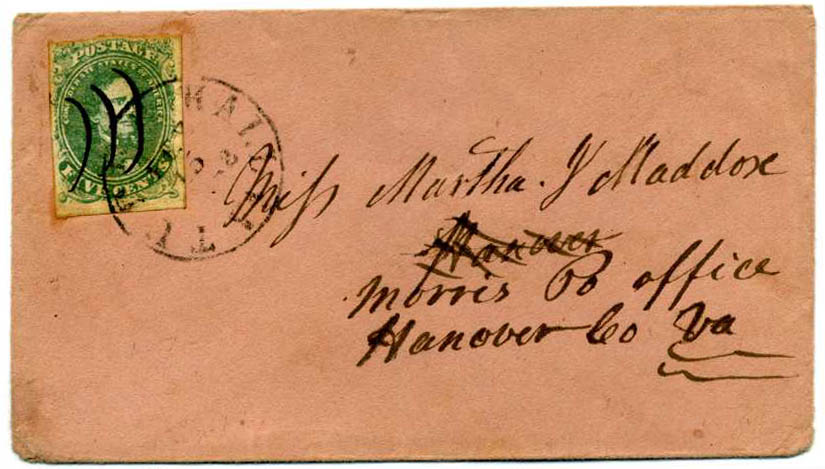 POSTAGE
CONFEDERATE STATES OF AMERICA
FIVE CENTS
Miss Martha. J Maddox
Hanover
Morris Po office
Hanover Co Va